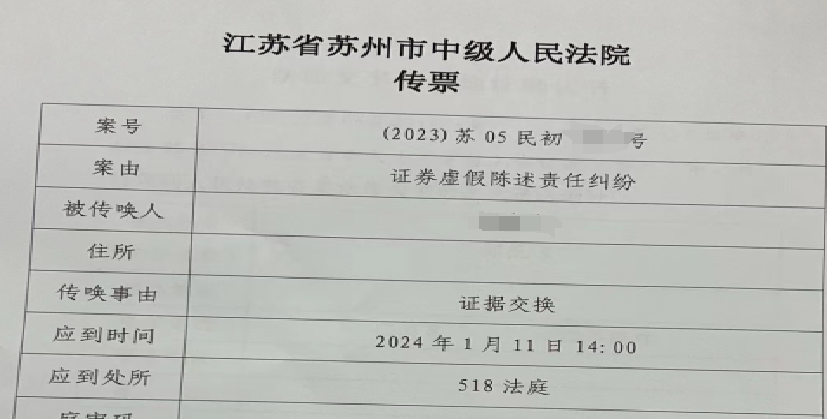 江苏省苏州市中级人民法院
传票
案号 (2023)苏 05 民初 号
案由 证券虚假陈述责任纠纷
被传唤人
住所
传唤事由 证据交换
应到时间 2024 年 1 月 11 日 14:00
应到处所 518 法庭